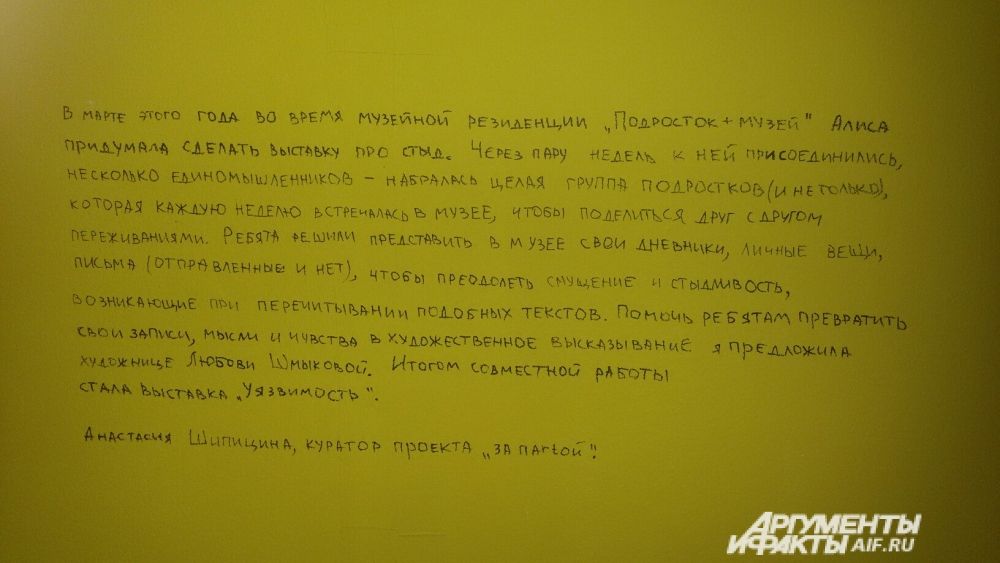 В МАРТЕ ЭТОГО ГОДА ВО ВРЕМЯ МУЗЕЙНОЙ РЕЗИДЕНЦИИ „ПОДРОСТОК + МУЗЕЙ" АЛИСА
ПРИДУМАЛА СДЕЛАТЬ ВЫСТАВКУ ПРО СТЫД. ЧЕРЕЗ ПАРУ НЕДЕЛЬ К НЕЙ ПРИСОЕДИНИЛИСЬ,
НЕСКОЛЬКО ЕДИНОМЫШЛЕННИКОВ – НАБРАЛАСЬ ЦЕЛАЯ ГРУППА ПОДРОСТКОВ (И НЕ ТОЛЬКО),
КОТОРАЯ КАЖДУЮ НЕДЕЛЮ ВСТРЕЧАЛАСЬ В МУЗЕЕ, ЧТОБЫ ПОДЕЛИТЬСЯ ДРУГ С ДРУГОМ
ПЕРЕЖИВАНИЯМИ. РЕБЯТА РЕШИЛИ ПРЕДСТАВИТЬ В МУЗЕЕ СВОИ ДНЕВНИКИ, ЛИЧНЫЕ ВЕЩИ,
ПИСЬМА (ОТПРАВЛЕННЫЕ И НЕТ), ЧТОБЫ ПРЕОДОЛЕТЬ СМУЩЕНИЕ И СТЫДЛИВОСТЬ,
ВОЗНИКАЮЩИЕ ПРИ ПЕРЕЧИТЫВАНИИ ПОДОБНЫХ ТЕКСТОВ. ПОМОЧЬ РЕБЯТАМ ПРЕВРАТИТЬ
СВОИ ЗАПИСИ, МЫСЛИ И ЧУВСТВА В ХУДОЖЕСТВЕННОЕ ВЫСКАЗЫВАНИЕ Я ПРЕДЛОЖИЛА
ХУДОЖНИЦЕ ЛЮБОВИ ШМЫКОВОЙ. ИТОГОМ СОВМЕСТНОЙ РАБОТЫ
СТАЛА ВЫСТАВКА „УЯЗВИМОСТЬ".
АНАСТАСИЯ ШИПИЦИНА, КУРАТОР ПРОЕКТА „ЗА ПАRtОЙ".
АРГУМЕНТЫ
И ФАКТЫ AIF.RU